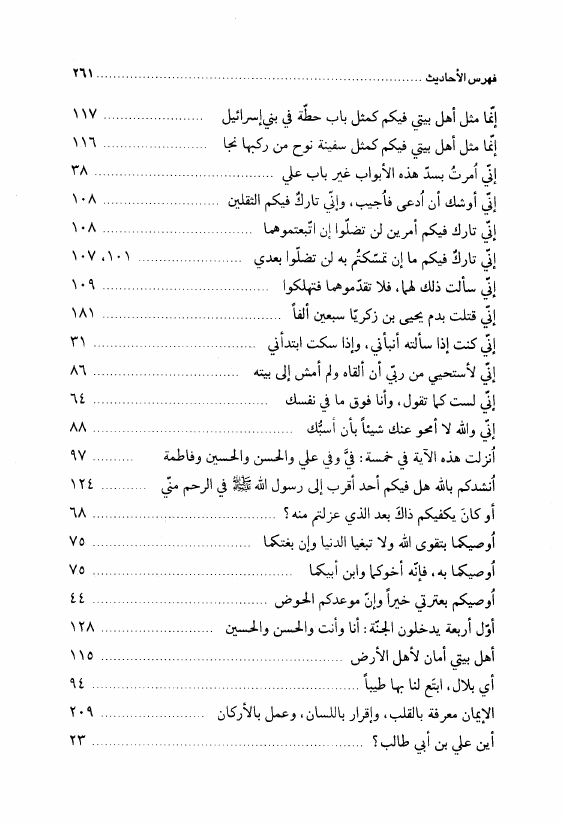 فهرس الأحاديث ........................ ٢٦١
إنّما مثل أهل بيتي فيكم كمثل باب حطّة في بني إسرائيل ........................ ١١٧
إنّما مثل أهل بيتي فيكم كمثل سفينة نوح من ركبها نجا ........................ ١١٦
إنّي اُمرتُ بسدّ هذه الأبواب غير باب علي ........................ ٣٨
إنّي أوشك أن اُدعى فاُجيب، وإنّي تاركٌ فيكم الثقلين ........................ ١٠٨
إنّي تارك فيكم أمرين لن تضلّوا إن اتّبعتموهما ........................ ١٠٨
إنّي تاركٌ فيكم ما إن تمسّكتُم به لن تضلّوا بعدي ........................ ١٠١، ١٠٧
إنّي سألت ذلك لهما، فلا تقدّموهما فتهلكوا ........................ ١٠٩
إنّي قتلت بدم يحيى بن زكريّا سبعين ألفاً ........................ ١٨١
إنّي كنت إذا سألته أنبأني، وإذا سكت ابتدأني ........................ ٣١
إنّي لأستحيي من ربّي أن ألقاه ولم أمش إلى بيته ........................ ٨٦
إنّي لست كما تقول، وأنا فوق ما في نفسك ........................ ٦٤
إنّي والله لا أمحو عنك شيئاً بأن أسبُّك ........................ ٨٨
اُنزلت هذه الآية في خمسة: فيَّ وفي علي والحسن والحسين وفاطمة .......... ٩٧
اُنشدكم بالله هل فيكم أحد أقرب إلى رسول الله ﷺ في الرحم منّي .......... ١٢٤
أو كانَ يكفيكم ذاكَ بعد الذي عزلتم منه؟ ........................ ٦٨
اُوصيكما بتقوى الله ولا تبغيا الدنيا وإن بغتكما ........................ ٧٥
اُوصيكما به، فإنّه أخوكما وابن أبيكما ........................ ٧٥
اُوصيكم بعترتي خيراً وإنّ موعدكم الحوض ........................ ٤٤
أوّل أربعة يدخلون الجنّة: أنا وأنت والحسن والحسين ........................ ١٢٨
أهل بيتي أمان لأهل الأرض ........................ ١١٥
أي بلال، ابتَع لنا بها طيباً ........................ ٩٤
الإيمان معرفة بالقلب، وإقرار باللسان، وعمل بالأركان ........................ ٢٠٩
أين علي بن أبي طالب؟ ........................ ٢٣